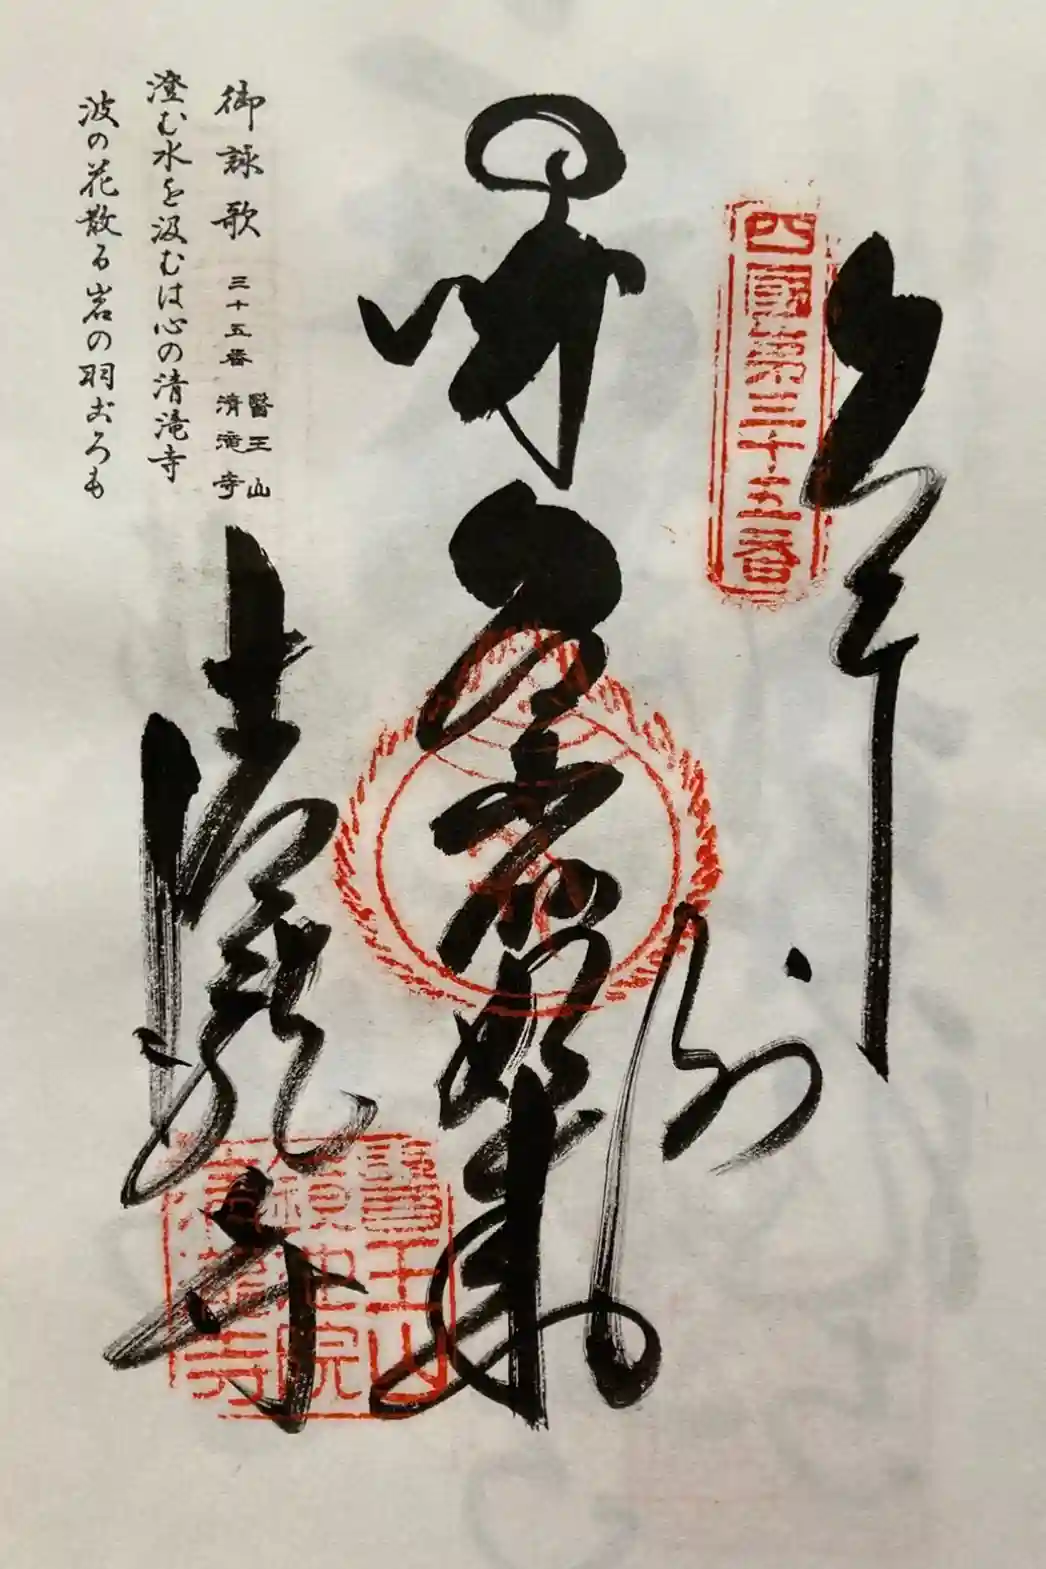 奉納
四國第三十五番
薬師如来
醫王山
鏡池院
清瀧寺
清瀧寺
御詠歌 三十五番 醫王山 清滝寺
澄む水を汲むは心の清滝寺
波の花散る岩の羽ごろも